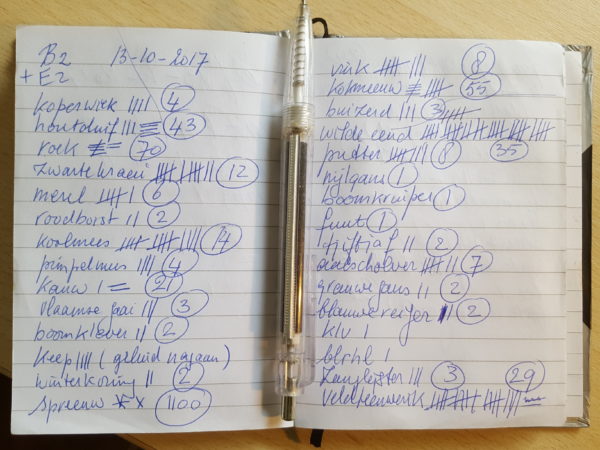 B2 13-10-2017
+ E2
koperwiek |||| 4
houtduif ||| 43
roek 70
zwarte kraai 12
merel 6
roodborst || 2
koolmees 14
pimpelmees |||| 4
kauw | = 21
vlaamse gaai || 3
boomklever || 2
keep |||| (geluid nagaan)
winterkoning || 2
spreeuw x x 1100
vink 8
kokmeeuw 55
buizerd ||| 3
wilde eend
putter 8 35
nijlgans 1
boomkruiper 1
fuut 1
tjiftjaf || 2
aalscholver 7
grauwe gans || 2
blauwe reiger || 2
klv |
blrhl |
zanglijster ||| 3 29
veldleeuwerik